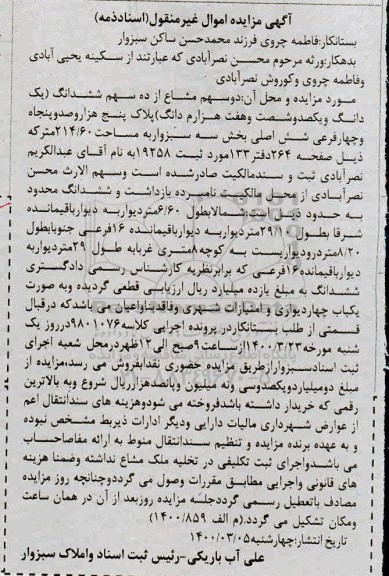 آگهی مزایده اموال غیرمنقول(اسنادذمه)
بستانکار:فاطمه چروی فرزند محمدحسن ساکن سبزوار
بدهکار:ورثه مرحوم محسن نصرآبادی که عبارتند از سکینه یحیی آبادی
وفاطمه چروی وکوروش نصرآبادی
مورد مزایده و محل آن:دوسهم مشاع از ده سهم ششدانگ (یک
دانگ ویکصدوشصت وهفت هزارم دانگ)پلاک پنج هزاروصدوپنجاه
وچهارفرعی شش اصلی بخش سه سبزواربه مساحت ۲۱۴/۶۰مترکه
ذیل صفحه ۲۶۴دفتر۱۳۳مورد ثبت ۱۹۲۵۸به نام آقای عبدالکریم
نصرآبادی ثبت و سندمالکیت صادرشده است وسهم الارث محسن
نصرآبادی از محل مالکیت نامبرده بازداشت و ششدانگ محدود
به حدود ذیل است:شمالابطول ۶/۶۰متردیواربه دیوارباقیمانده
شرقا بطول ۲۹/۱۰متردیواربه دیوارباقیمانده ۱۶فرعی جنوبابطول
۸/۲۰متردرودیواریست به کوچه۸متری غربابه طول ۲۹متردیواربه
دیوارباقیمانده۱۶فرعی که برابرنظریه کارشناس رسمی دادگستری
ششدانگ به مبلغ یازده میلیارد ریال ارزیابی قطعی گردیده وبه صورت
یکباب چهاردیواری و امتیازات شهری وفاقداعیان می باشدکه درقبال
قسمتی از طلب بستانکاردر پرونده اجرایی کلاسه۹۸۰۱۰۷۶درروز یک
شنبه مورخه۱۴۰۰/۳/۲۳ازساعت۹صبح الی۱۲ظهردرمحل شعبه اجرای
ثبت اسنادسبزوارازطریق مزایده حضوری نقدابفروش می رسد،مزایده از
مبلغ دومیلیاردویکصدوسی ونه میلیون وپانصدهزارریال شروع وبه بالاترین
رقمی که خریدار داشته باشدفروخته می شودوهزینه های سندانتقال اعم
از عوارض شهرداری مالیات دارایی ودیگر ادارات ذیربط مشخص نبوده
و به عهده برنده مزایده و تنظیم سندانتقال منوط به ارائه مفاصاحساب
می باشدواجرای ثبت تکلیفی در تخلیه ملک مشاع نداشته وضمنا هزینه
های قانونی واجرایی مطابق مقررات وصول می گرددوچنانچه روز مزایده
مصادف باتعطیل رسمی گرددجلسه مزایده روزبعد از آن در همان ساعت
ومکان تشکیل می گردد.(م الف ۱۴۰۰/۸۵۹)
تاریخ انتشار:چهارشنبه۱۴۰۰/۰۳/۰۵
علی آب باریکی-رئیس ثبت اسناد واملاک سبزوار